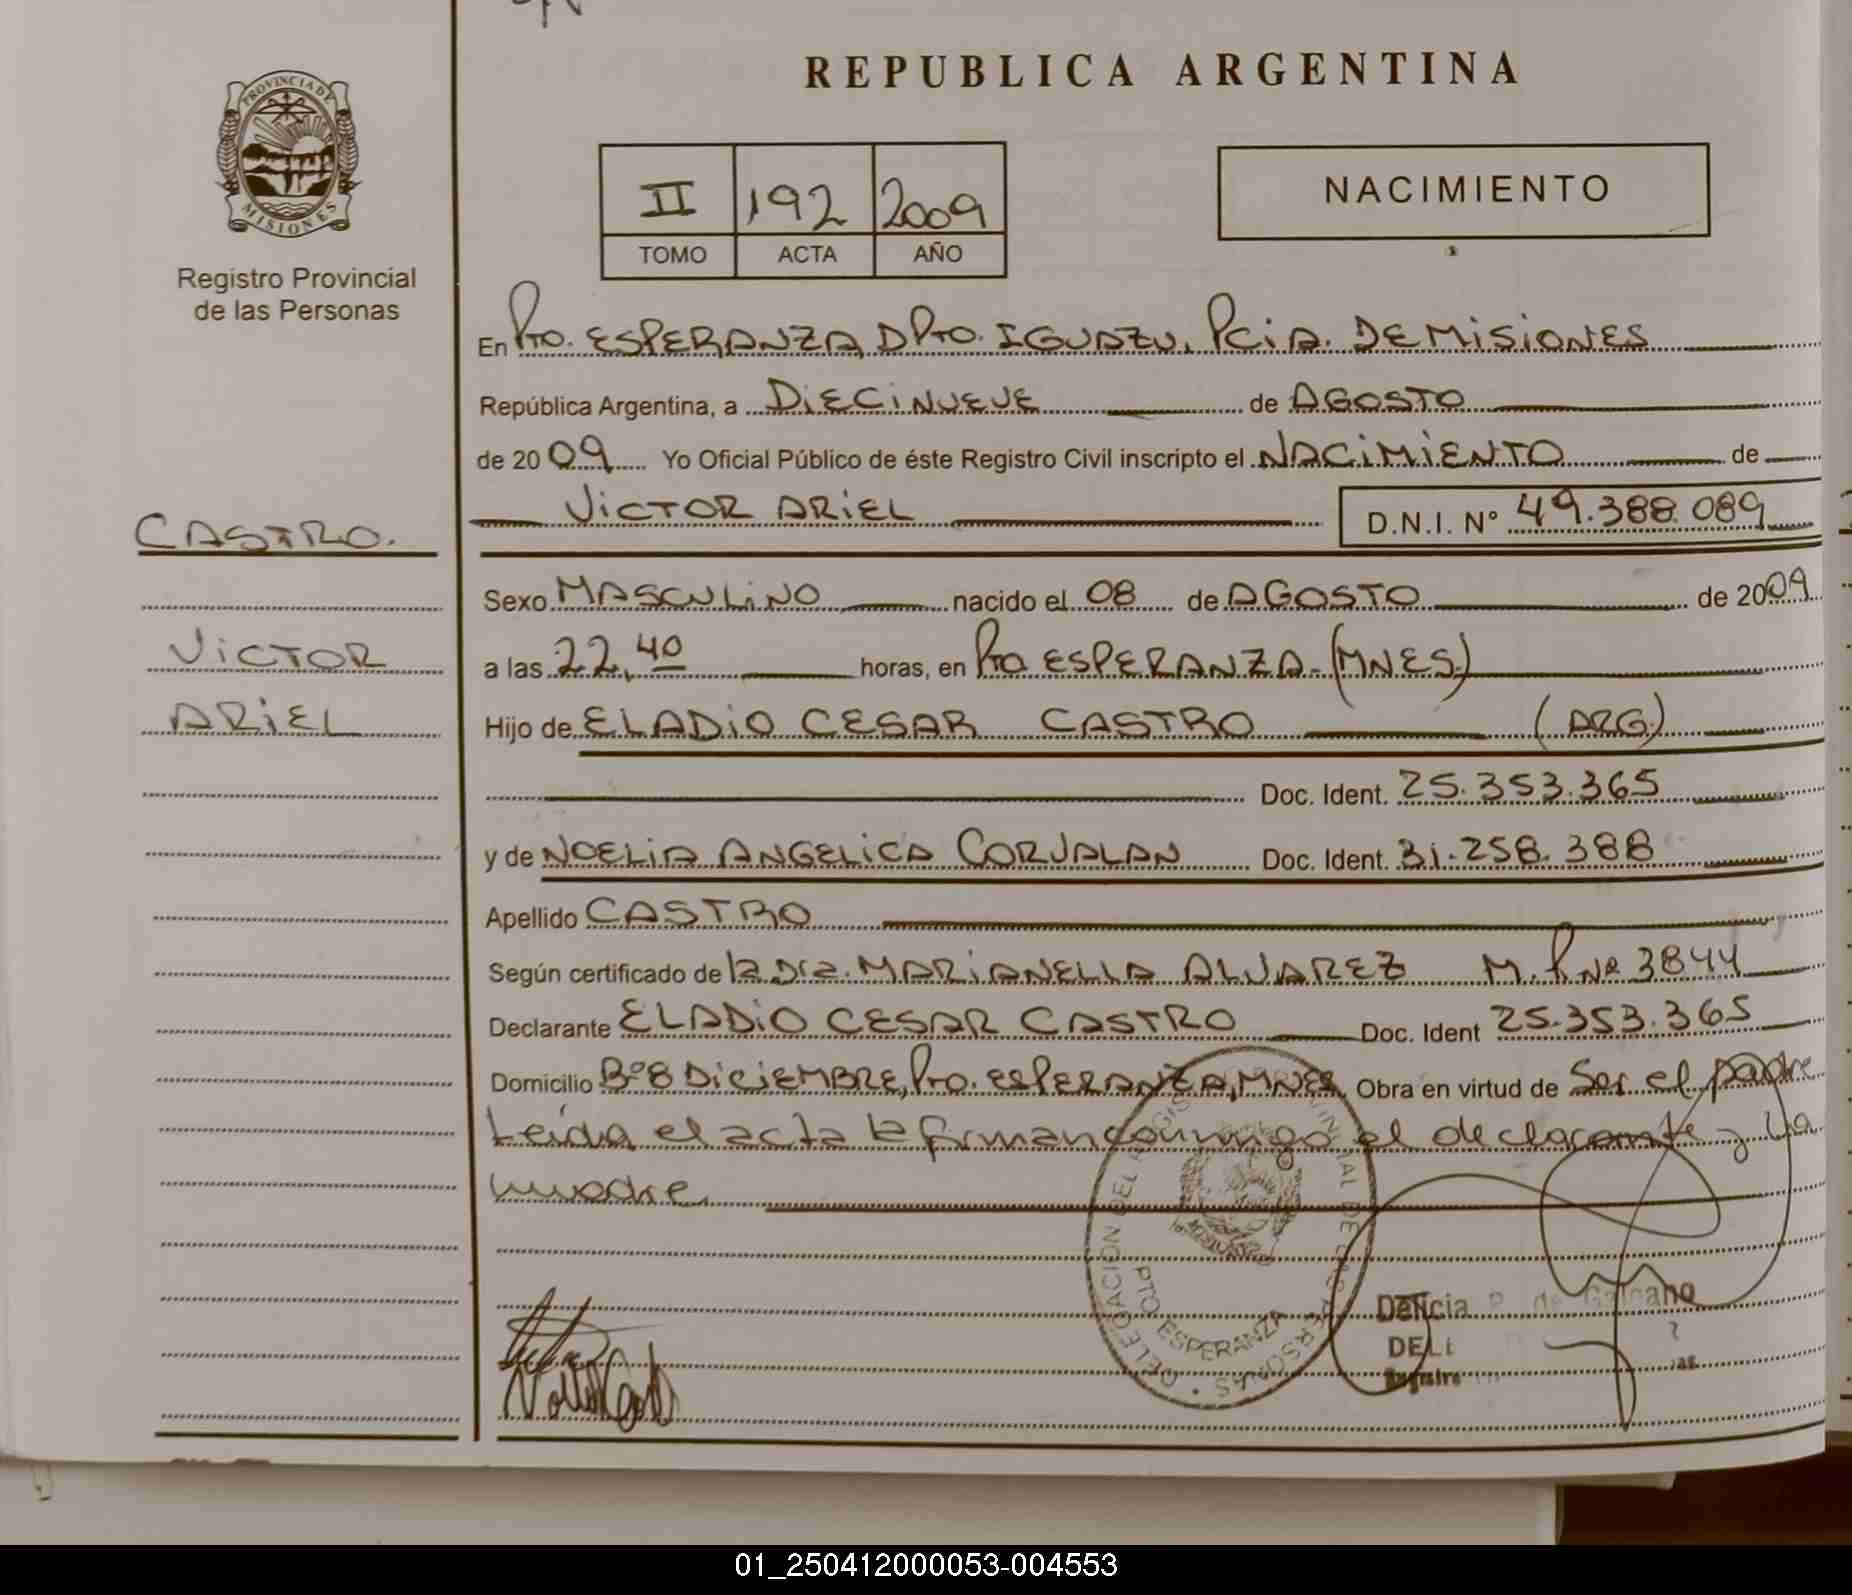 REPUBLICA ARGENTINA
PROVINCIA DE
MISIONES
Registro Provincial
de las Personas
II 192 2009
TOMO ACTA AÑO
NACIMIENTO
En Pto. ESPERANZA, DPto. IGUAZU, PCiA. DE MiSiONES
República Argentina, a DiECiNUEVE de AGOSTO
de 2009 Yo Oficial Público de éste Registro Civil inscripto el NACiMiENTO de
ViCTOR ARiEL D.N.I. N° 49.388.089
CASTRO.
ViCTOR
ARiEL
Sexo MASCULiNO nacido el 08 de AGOSTO de 2009
a las 22,40 horas, en Pto ESPERANZA-(MNES.)
Hijo de ELADiO CESAR CASTRO (ARG.)
Doc. Ident. 25.353.365
y de NOELiA ANGELiCA CORVALAN Doc. Ident. 31.258.388
Apellido CASTRO
Según certificado de la Dra. MARiANELLA ALVAREZ M.P. Nº 3844
Declarante ELADiO CESAR CASTRO Doc. Ident 25.353.365
Domicilio Bº 8 DiCiEMBRE, Pto. ESPERANZA, MNES Obra en virtud de Ser el padre
Leida el acta la firman conmigo el declarante y la
madre.
DELEGACION DEL REGISTRO PROVINCIAL DE LAS PERSONAS
PTO ESPERANZA
Delicia P. de Galeano
DELE
Registro
01_250412000053-004553